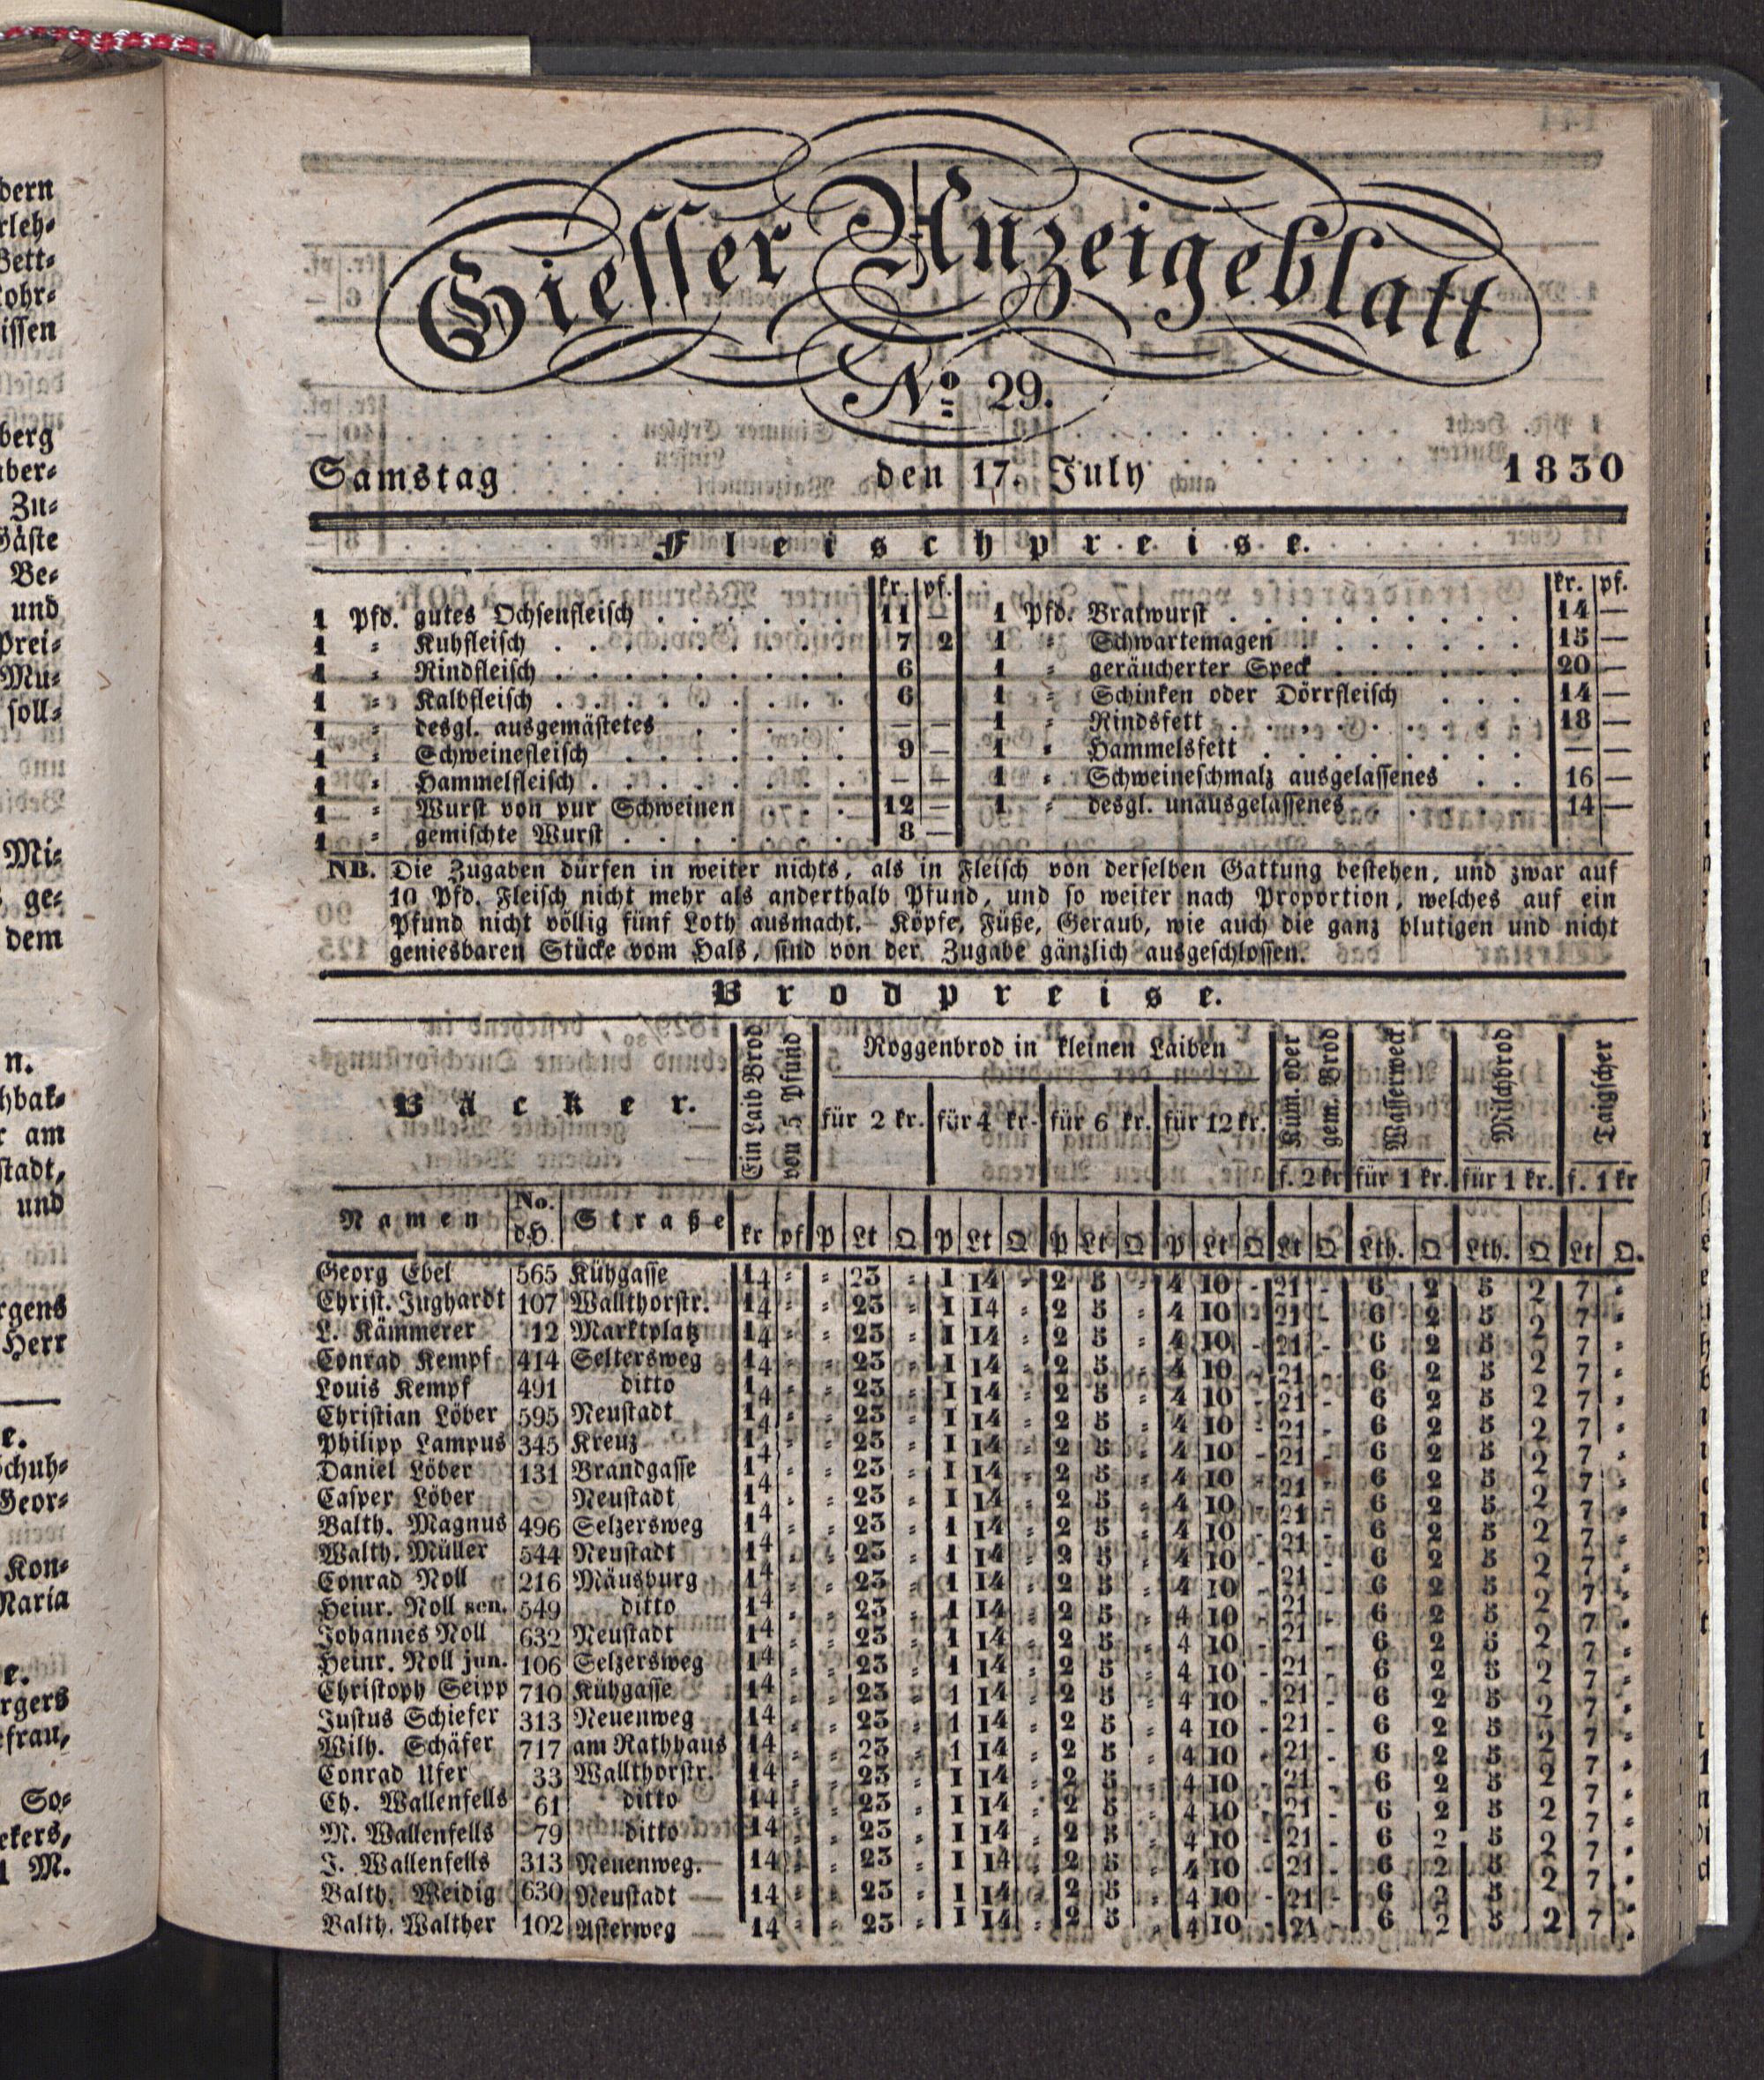 dern
rleh⸗
Bett⸗
issen
berg
Zu⸗
Gäste
Be⸗
und
Prei⸗
Mu⸗
soll⸗
Mi⸗
ge⸗
dem
n.
hbak⸗
r am
stadt,
und
rgens
Herr
e.
Schuh⸗
Geor⸗
Kon⸗
Maria
e.
rgers
efrau,
So⸗
ekers,
M.
Giesser Anzeigeblatt
No 29.
Samstag den 17. July 1830
Fleischpreise.
kr. pf. kr. pf.
1 Pfd. gutes Ochsenfleisch . . . . . . 11 — 1 Pfd. Bratwurst . . . . . . . . . 14 —
1 ⸗ Kuhfleisch . . . . . . . . . 7 2 1 ⸗ Schwartemagen . . . . . . . 15 —
1 ⸗ Rindfleisch . . . . . . . . . 6 1 ⸗ geräucherter Speck . . . . . . 20 —
1 ⸗ Kalbfleisch . . . . . . . . . 6 1 ⸗ Schinken oder Dörrfleisch . . . 14 —
1 ⸗ desgl. ausgemästetes . . . . . — — 1 ⸗ Rindsfett . . . . . . . . . 18 —
1 ⸗ Schweinefleisch . . . . . . . 9 — 1 ⸗ Hammelsfett . . . . . . . . — —
1 ⸗ Hammelfleisch . . . . . . . . — — 1 ⸗ Schweineschmalz ausgelassenes . . 16 —
1 ⸗ Wurst von pur Schweinen . . . 12 — 1 ⸗ desgl. unausgelassenes . . . . . 14 —
1 ⸗ gemischte Wurst . . . . . . . 8 —
NB. Die Zugaben dürfen in weiter nichts, als in Fleisch von derselben Gattung bestehen, und zwar auf
10 Pfd. Fleisch nicht mehr als anderthalb Pfund, und so weiter nach Proportion, welches auf ein
Pfund nicht völlig fünf Loth ausmacht. Köpfe, Füße, Geraub, wie auch die ganz blutigen und nicht
geniesbaren Stücke vom Hals, sind von der Zugabe gänzlich ausgeschlossen.
Brodpreise.
Bäcker. Ein Laib Brod von 5 Pfund Roggenbrod in kleinen Laiben Küm. oder gem. Brod Wasserweck Milchbrod Taigscher
für 2 kr. für 4 kr. für 6 kr. für 12 kr. f. 2 kr für 1 kr. für 1 kr. f. 1 kr
Namen No. d.H. Straße kr pf P Lt Q P Lt Q P Lt Q P Lt Q Lt Q Lth. Q Lth. Q Lt Q.
Georg Ebel 565 Kühgasse 14 ⸗ ⸗ 23 ⸗ 1 14 ⸗ 2 5 ⸗ 4 10 - 21 - 6 2 5 2 7 ⸗
Christ. Jughardt 107 Wallthorstr. 14 ⸗ ⸗ 23 ⸗ 1 14 ⸗ 2 5 ⸗ 4 10 - 21 - 6 2 5 2 7 ⸗
L. Kämmerer 12 Marktplatz 14 ⸗ ⸗ 23 ⸗ 1 14 ⸗ 2 5 ⸗ 4 10 - 21 - 6 2 5 2 7 ⸗
Conrad Kempf 414 Seltersweg 14 ⸗ ⸗ 23 ⸗ 1 14 ⸗ 2 5 ⸗ 4 10 - 21 - 6 2 5 2 7 ⸗
Louis Kempf 491 ditto 14 ⸗ ⸗ 23 ⸗ 1 14 ⸗ 2 5 ⸗ 4 10 - 21 - 6 2 5 2 7 ⸗
Christian Löber 595 Neustadt 14 ⸗ ⸗ 23 ⸗ 1 14 ⸗ 2 5 ⸗ 4 10 - 21 - 6 2 5 2 7 ⸗
Philipp Lampus 345 Kreuz 14 ⸗ ⸗ 23 ⸗ 1 14 ⸗ 2 5 ⸗ 4 10 - 21 - 6 2 5 2 7 ⸗
Daniel Löber 131 Brandgasse 14 ⸗ ⸗ 23 ⸗ 1 14 ⸗ 2 5 ⸗ 4 10 - 21 - 6 2 5 2 7 ⸗
Casper Löber Neustadt 14 ⸗ ⸗ 23 ⸗ 1 14 ⸗ 2 5 ⸗ 4 10 - 21 - 6 2 5 2 7 ⸗
Balth. Magnus 496 Selzersweg 14 ⸗ ⸗ 23 ⸗ 1 14 ⸗ 2 5 ⸗ 4 10 - 21 - 6 2 5 2 7 ⸗
Walth. Müller 544 Neustadt 14 ⸗ ⸗ 23 ⸗ 1 14 ⸗ 2 5 ⸗ 4 10 - 21 - 6 2 5 2 7 ⸗
Conrad Noll 216 Mäusburg 14 ⸗ ⸗ 23 ⸗ 1 14 ⸗ 2 5 ⸗ 4 10 - 21 - 6 2 5 2 7 ⸗
Heinr. Noll sen. 549 ditto 14 ⸗ ⸗ 23 ⸗ 1 14 ⸗ 2 5 ⸗ 4 10 - 21 - 6 2 5 2 7 ⸗
Johannes Noll 632 Neustadt 14 ⸗ ⸗ 23 ⸗ 1 14 ⸗ 2 5 ⸗ 4 10 - 21 - 6 2 5 2 7 ⸗
Heinr. Noll jun. 106 Selzersweg 14 ⸗ ⸗ 23 ⸗ 1 14 ⸗ 2 5 ⸗ 4 10 - 21 - 6 2 5 2 7 ⸗
Christoph Seipp 710 Kühgasse 14 ⸗ ⸗ 23 ⸗ 1 14 ⸗ 2 5 ⸗ 4 10 - 21 - 6 2 5 2 7 ⸗
Justus Schiefer 313 Neuenweg 14 ⸗ ⸗ 23 ⸗ 1 14 ⸗ 2 5 ⸗ 4 10 - 21 - 6 2 5 2 7 ⸗
Wilh. Schäfer 717 am Rathhaus 14 ⸗ ⸗ 23 ⸗ 1 14 ⸗ 2 5 ⸗ 4 10 - 21 - 6 2 5 2 7 ⸗
Conrad Ufer 33 Wallthorstr. 14 ⸗ ⸗ 23 ⸗ 1 14 ⸗ 2 5 ⸗ 4 10 - 21 - 6 2 5 2 7 ⸗
Ch. Wallenfells 61 ditto 14 ⸗ ⸗ 23 ⸗ 1 14 ⸗ 2 5 ⸗ 4 10 - 21 - 6 2 5 2 7 ⸗
M. Wallenfells 79 ditto 14 ⸗ ⸗ 23 ⸗ 1 14 ⸗ 2 5 ⸗ 4 10 - 21 - 6 2 5 2 7 ⸗
J. Wallenfells 313 Neuenweg. 14 ⸗ ⸗ 23 ⸗ 1 14 ⸗ 2 5 ⸗ 4 10 - 21 - 6 2 5 2 7 ⸗
Balth. Weidig 630 Neustadt 14 ⸗ ⸗ 23 ⸗ 1 14 ⸗ 2 5 ⸗ 4 10 - 21 - 6 2 5 2 7 ⸗
Balth. Walther 102 Asterweg 14 ⸗ ⸗ 23 ⸗ 1 14 ⸗ 2 5 ⸗ 4 10 - 21 - 6 2 5 2 7 ⸗